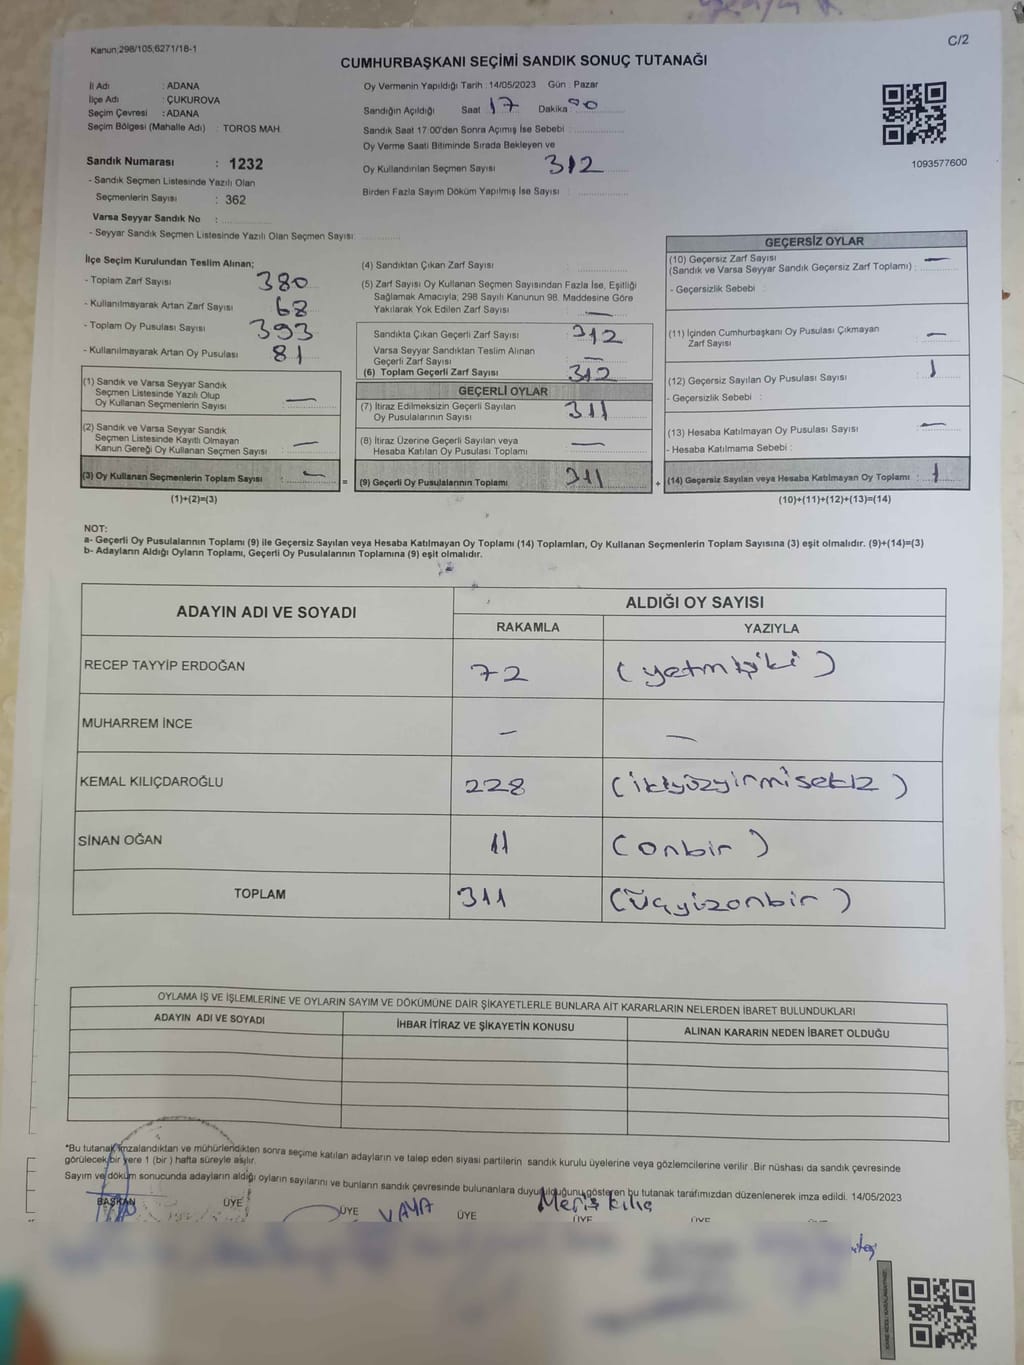 Kanun;298/105;6271/18-1
C/2
CUMHURBAŞKANI SEÇİMİ SANDIK SONUÇ TUTANAĞI
İl Adı : ADANA
İlçe Adı : ÇUKUROVA
Seçim Çevresi : ADANA
Seçim Bölgesi (Mahalle Adı) : TOROS MAH.
Sandık Numarası : 1232
- Sandık Seçmen Listesinde Yazılı Olan
Seçmenlerin Sayısı : 362
Varsa Seyyar Sandık No :
- Seyyar Sandık Seçmen Listesinde Yazılı Olan Seçmen Sayısı:
Oy Vermenin Yapıldığı Tarih : 14/05/2023 Gün : Pazar
Sandığın Açıldığı Saat 17 Dakika
Sandık Saat 17:00'den Sonra Açımış İse Sebebi :
Oy Verme Saati Bitiminde Sırada Bekleyen ve
Oy Kullandırılan Seçmen Sayısı 312
Birden Fazla Sayım Döküm Yapılmış İse Sayısı :
1093577600
İlçe Seçim Kurulundan Teslim Alınan;
- Toplam Zarf Sayısı 380
- Kullanılmayarak Artan Zarf Sayısı 68
- Toplam Oy Pusulası Sayısı 393
- Kullanılmayarak Artan Oy Pusulası 81
(1) Sandık ve Varsa Seyyar Sandık
Seçmen Listesinde Yazılı Olup
Oy Kullanan Seçmenlerin Sayısı : —
(2) Sandık ve Varsa Seyyar Sandık
Seçmen Listesinde Kayıtlı Olmayan
Kanun Gereği Oy Kullanan Seçmen Sayısı : —
(3) Oy Kullanan Seçmenlerin Toplam Sayısı : —
(1)+(2)=(3)
(4) Sandıktan Çıkan Zarf Sayısı
(5) Zarf Sayısı Oy Kullanan Seçmen Sayısından Fazla İse, Eşitliği
Sağlamak Amacıyla; 298 Sayılı Kanunun 98. Maddesine Göre
Yakılarak Yok Edilen Zarf Sayısı : —
Sandıkta Çıkan Geçerli Zarf Sayısı 312
Varsa Seyyar Sandıktan Teslim Alınan
Geçerli Zarf Sayısı —
(6) Toplam Geçerli Zarf Sayısı 312
GEÇERLİ OYLAR
(7) İtiraz Edilmeksizin Geçerli Sayılan
Oy Pusulalarının Sayısı 311
(8) İtiraz Üzerine Geçerli Sayılan veya
Hesaba Katılan Oy Pusulası Toplamı —
= (9) Geçerli Oy Pusulalarının Toplamı 311
GEÇERSİZ OYLAR
(10) Geçersiz Zarf Sayısı
(Sandık ve Varsa Seyyar Sandık Geçersiz Zarf Toplamı) : —
- Geçersizlik Sebebi :
(11) İçinden Cumhurbaşkanı Oy Pusulası Çıkmayan
Zarf Sayısı —
(12) Geçersiz Sayılan Oy Pusulası Sayısı 1
- Geçersizlik Sebebi :
(13) Hesaba Katılmayan Oy Pusulası Sayısı —
- Hesaba Katılmama Sebebi :
+ (14) Geçersiz Sayılan veya Hesaba Katılmayan Oy Toplamı : 1
(10)+(11)+(12)+(13)=(14)
NOT:
a- Geçerli Oy Pusulalarının Toplamı (9) ile Geçersiz Sayılan veya Hesaba Katılmayan Oy Toplamı (14) Toplamları, Oy Kullanan Seçmenlerin Toplam Sayısına (3) eşit olmalıdır. (9)+(14)=(3)
b- Adayların Aldığı Oyların Toplamı, Geçerli Oy Pusulalarının Toplamına (9) eşit olmalıdır.
ADAYIN ADI VE SOYADI
ALDIĞI OY SAYISI
RAKAMLA YAZIYLA
RECEP TAYYİP ERDOĞAN 72 (yetmişiki)
MUHARREM İNCE — —
KEMAL KILIÇDAROĞLU 228 (ikiyüzyirmisekiz)
SİNAN OĞAN 11 (onbir)
TOPLAM 311 (üçyüzonbir)
OYLAMA İŞ VE İŞLEMLERİNE VE OYLARIN SAYIM VE DÖKÜMÜNE DAİR ŞİKAYETLERLE BUNLARA AİT KARARLARIN NELERDEN İBARET BULUNDUKLARI
ADAYIN ADI VE SOYADI İHBAR İTİRAZ VE ŞİKAYETİN KONUSU ALINAN KARARIN NEDEN İBARET OLDUĞU
*Bu tutanak imzalandıktan ve mühürlendikten sonra seçime katılan adayların ve talep eden siyasi partilerin sandık kurulu üyelerine veya gözlemcilerine verilir. Bir nüshası da sandık çevresinde
görülecek bir yere 1 (bir) hafta süreyle asılır.
Sayım ve döküm sonucunda adayların aldığı oyların sayılarını ve bunların sandık çevresinde bulunanlara duyurulduğunu gösteren bu tutanak tarafımızdan düzenlenerek imza edildi. 14/05/2023
BAŞKAN ÜYE ÜYE ÜYE ÜYE ÜYE